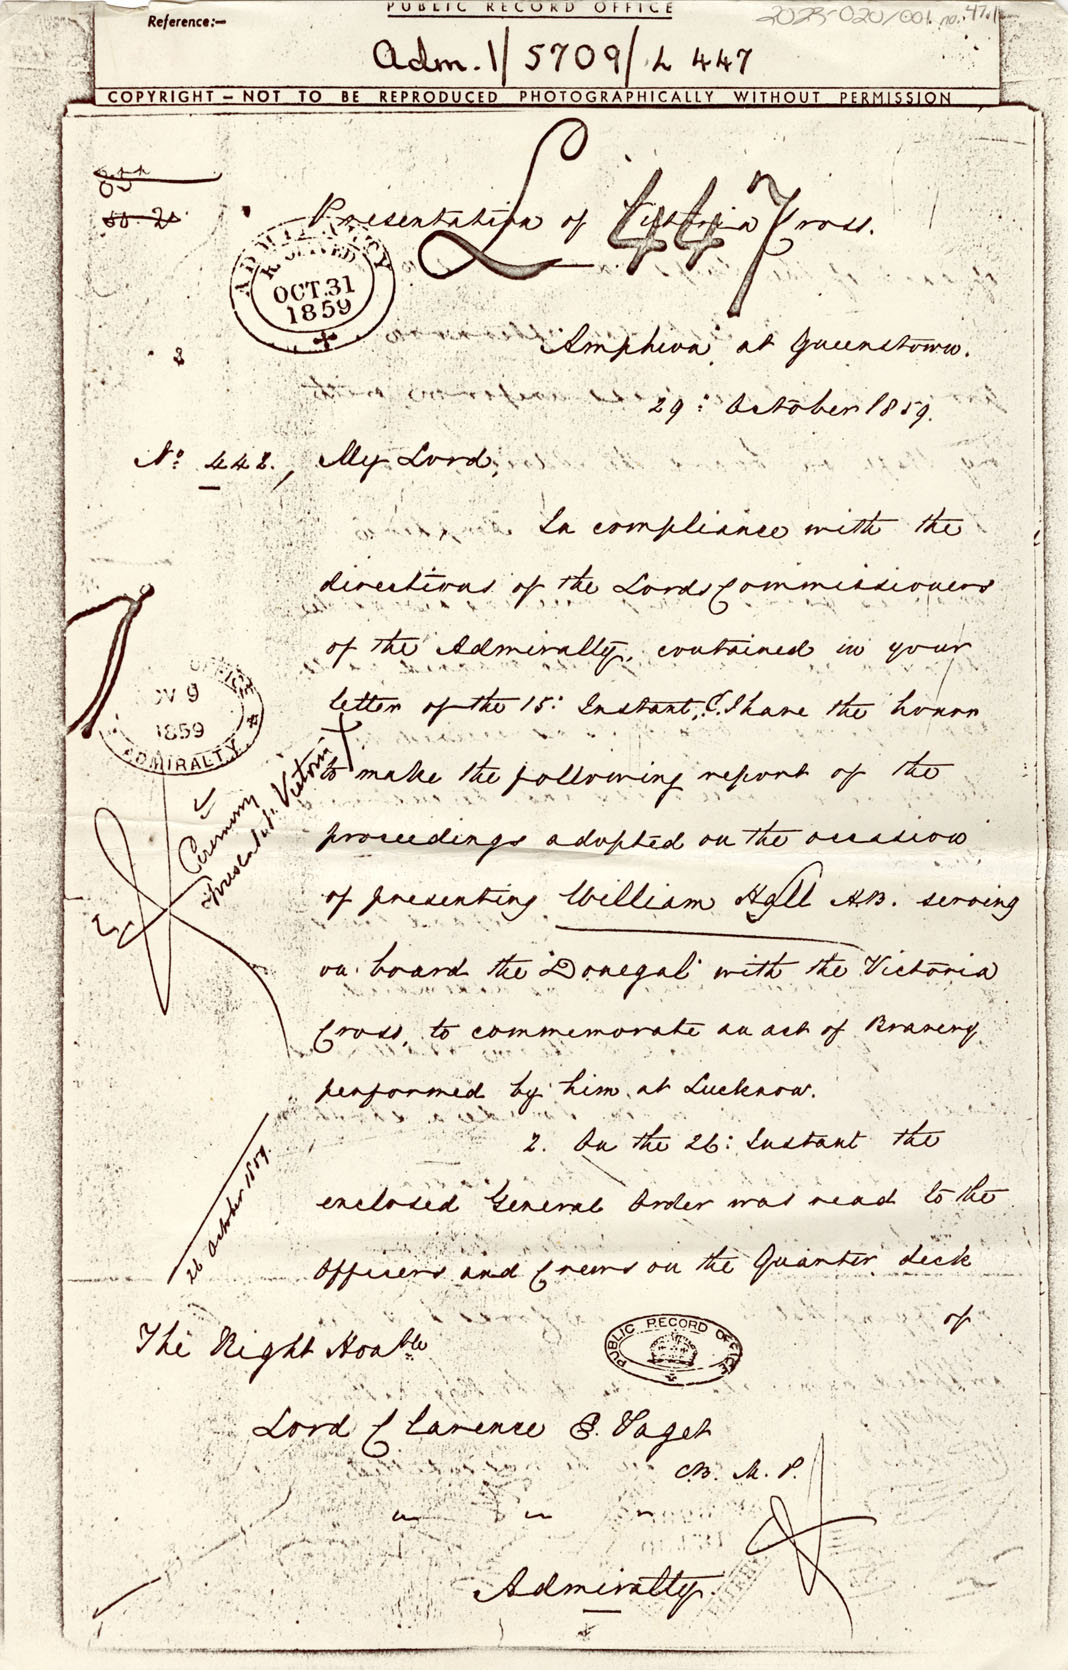 PUBLIC RECORD OFFICE
Reference:-
2023-020/001 no. 47.1
Adm. 1/5709/L 447
COPYRIGHT — NOT TO BE REPRODUCED PHOTOGRAPHICALLY WITHOUT PERMISSION
L 447
Presentation of Victoria Cross.
ADMIRALTY
RECEIVED
OCT. 31
1859
"Amphion" at Queenstown.
29: October 1859.
No 442.,
My Lord,
In compliance with the
directions of the Lords Commissioners
of the Admiralty, contained in your
letter of the 15: Instant, I have the honor
to make the following report of the
proceedings adopted on the occasion
of presenting William Hall AB. serving
on board the "Donegal" with the Victoria
Cross, to commemorate an act of Bravery
performed by him at Lucknow.
2. On the 26: Instant the
enclosed General Order was read to the
Officers and Crews on the Quarter deck
of
NOV 9
1859
ADMIRALTY
Ceremony
presentatn. Victoria
26 October 1859.
The Right Honble
PUBLIC RECORD OFFICE
Lord Clarence E. Paget
CB. M. P.
" " "
Admiralty.